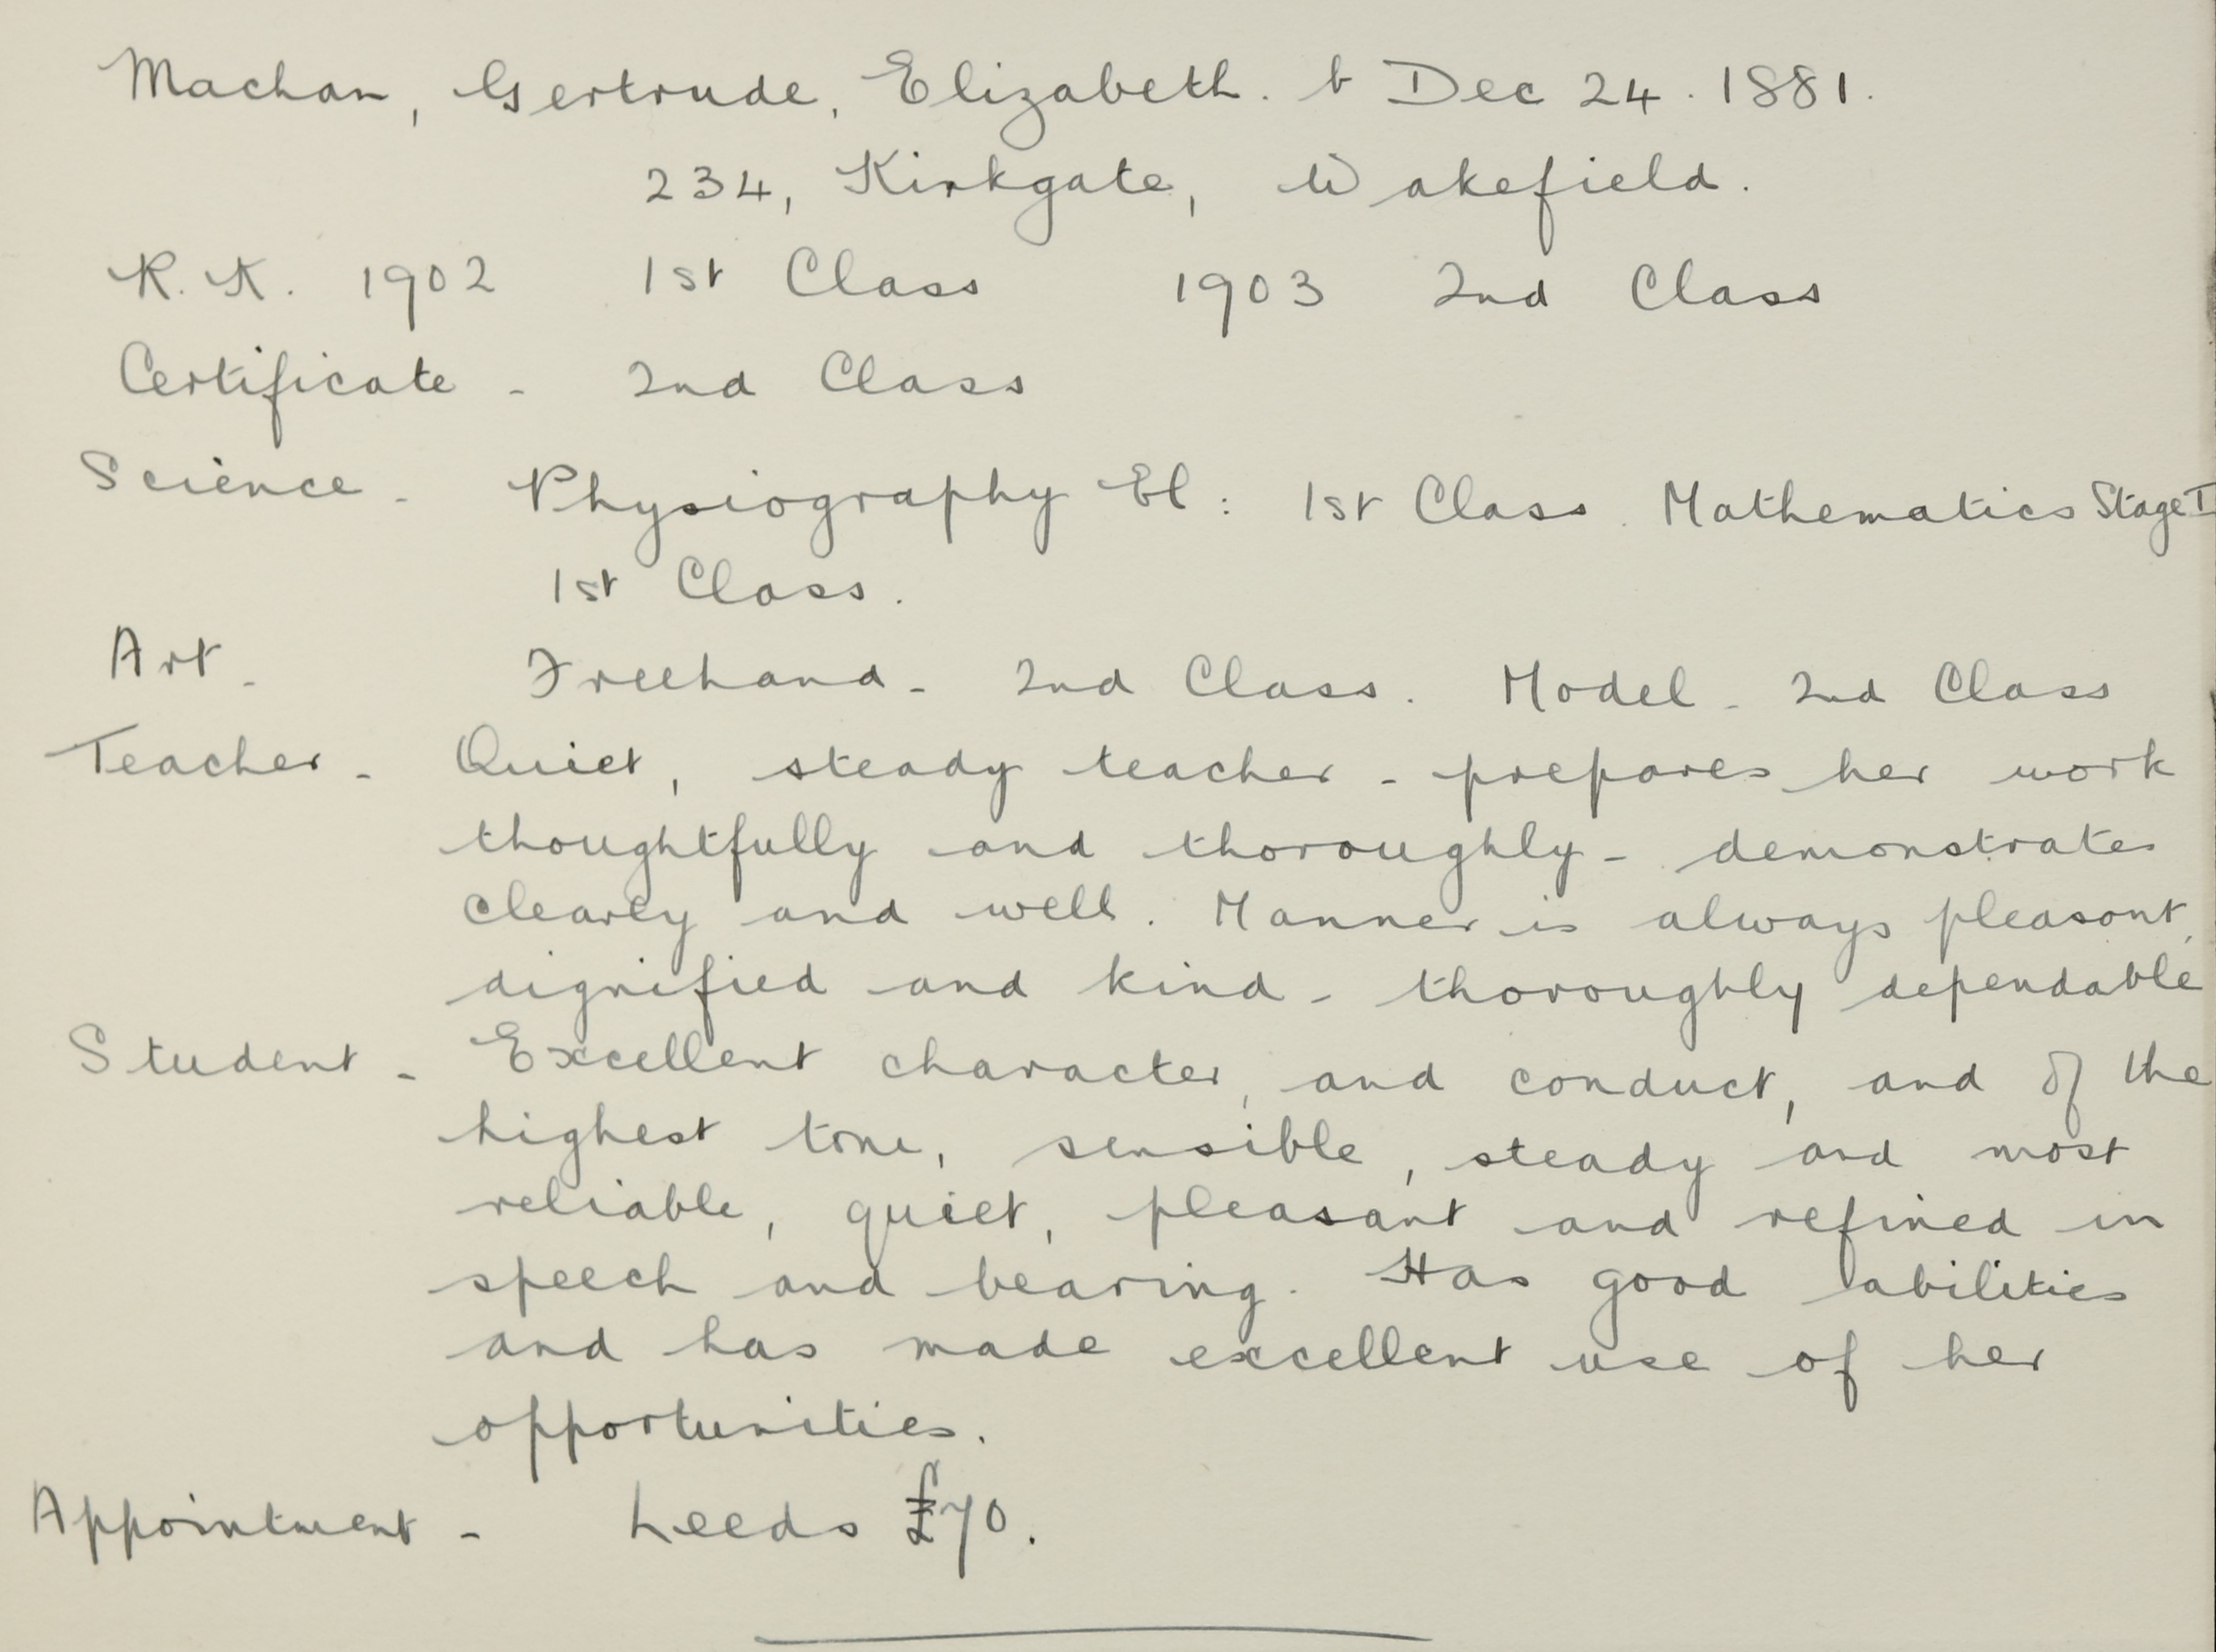 Machan, Gertrude, Elizabeth. b Dec 24. 1881.
234, Kirkgate, Wakefield.
R.K. 1902 1st Class 1903 2nd Class
Certificate - 2nd Class
Science - Physiography El: 1st Class. Mathematics Stage I
1st Class.
Art - Freehand - 2nd Class. Model - 2nd Class
Teacher - Quiet, steady teacher - prepares her work
thoughtfully and thoroughly - demonstrates
clearly and well. Manner is always pleasant,
dignified and kind - thoroughly dependable
Student - Excellent character, and conduct, and of the
highest tone, sensible, steady and most
reliable, quiet, pleasant and refined in
speech and bearing. Has good abilities
and has made excellent use of her
opportunities.
Appointment - Leeds £70.